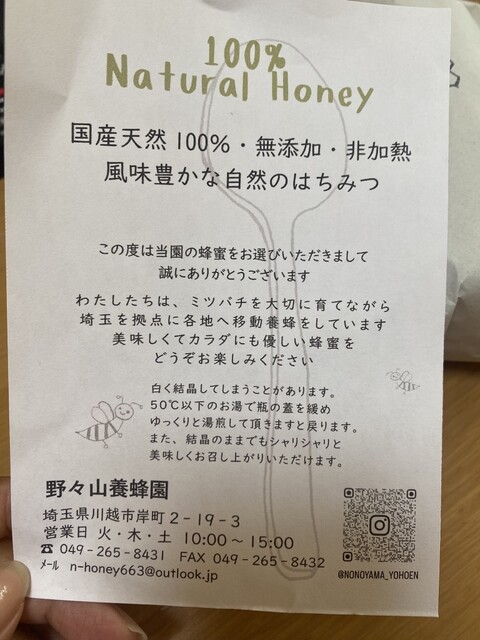 100%
Natural Honey
国産天然100%・無添加・非加熱
風味豊かな自然のはちみつ
この度は当園の蜂蜜をお選びいただきまして
誠にありがとうございます
わたしたちは、ミツバチを大切に育てながら
埼玉を拠点に各地へ移動養蜂をしています
美味しくてカラダにも優しい蜂蜜を
どうぞお楽しみください
白く結晶してしまうことがあります。
50℃以下のお湯で瓶の蓋を緩め
ゆっくりと湯煎して頂きますと戻ります。
また、結晶のままでもシャリシャリと
美味しくお召し上がりいただけます。
野々山養蜂園
埼玉県川越市岸町2-19-3
営業日 火・木・土 10:00〜15:00
☎ 049-265-8431 FAX 049-265-8432
メール n-honey663@outlook.jp
@NONOYAMA_YOHOEN